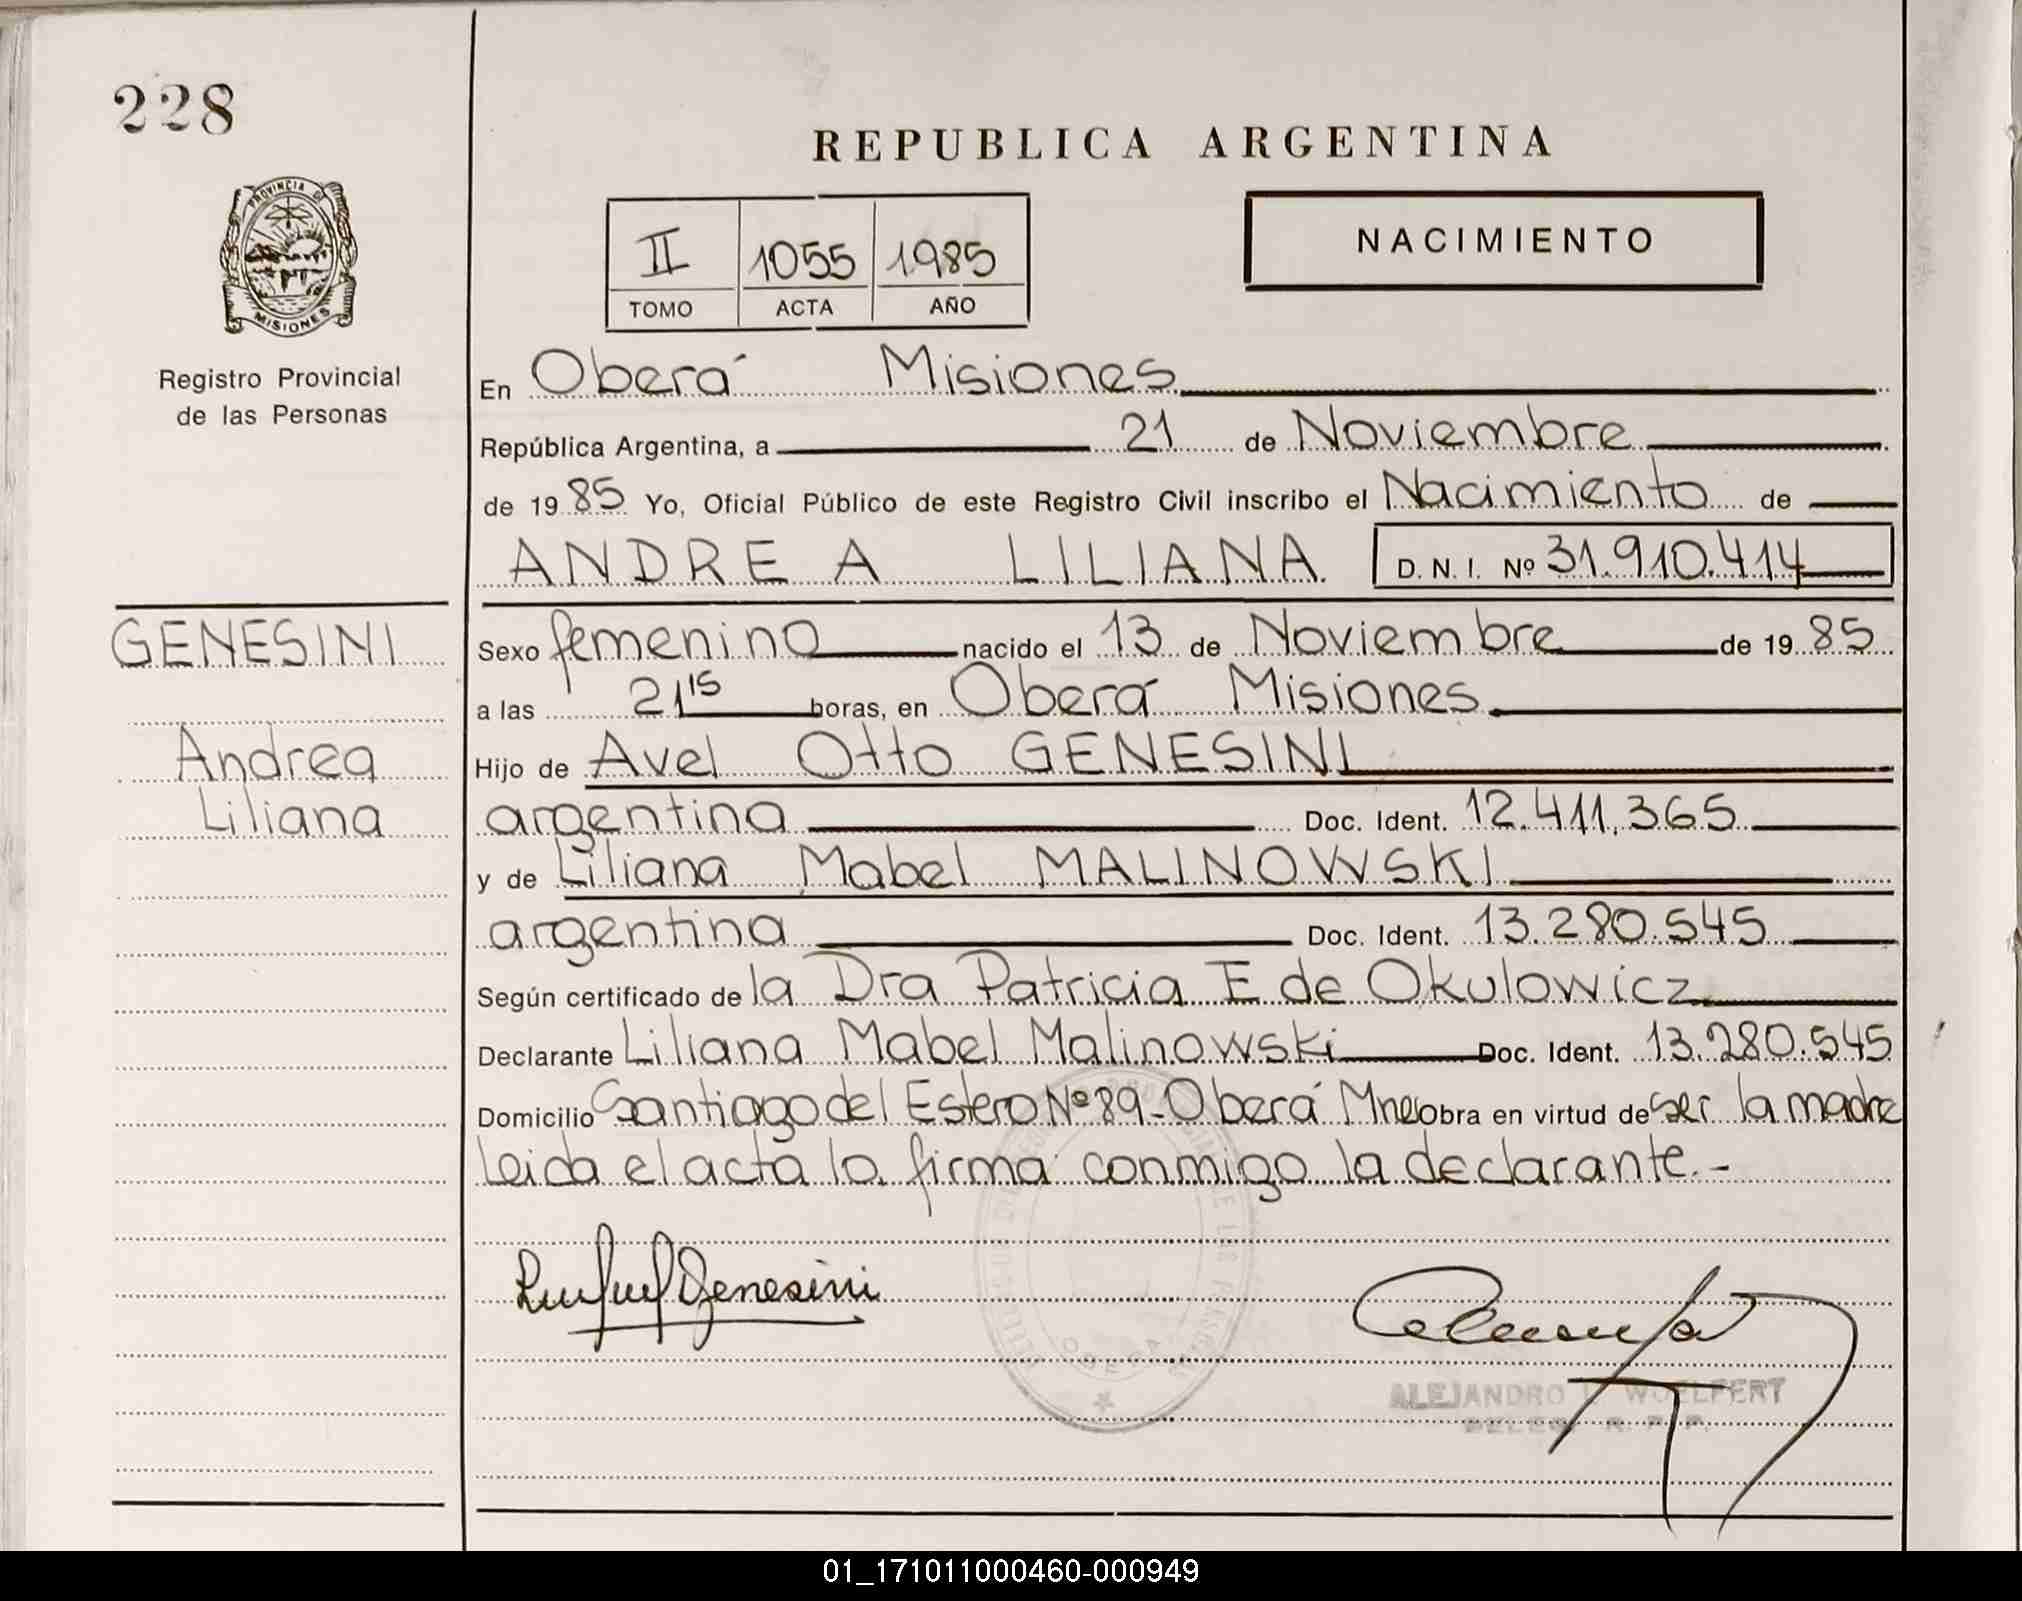 228
REPUBLICA ARGENTINA
PROVINCIA DE
MISIONES
II 1055 1985
TOMO ACTA AÑO
NACIMIENTO
Registro Provincial
de las Personas
En Oberá Misiones
República Argentina, a 21 de Noviembre
de 19 85 Yo, Oficial Público de este Registro Civil inscribo el Nacimiento de
ANDREA LILIANA D.N.I. Nº 31.910.414
GENESINI
Andrea
Liliana
Sexo femenino nacido el 13 de Noviembre de 19 85
a las 21 15 horas, en Oberá Misiones
Hijo de Avel Otto GENESINI
argentina Doc. Ident. 12.411.365
y de Liliana Mabel MALINOWSKI
argentina Doc. Ident. 13.280.545
Según certificado de la Dra Patricia E de Okulowicz
Declarante Liliana Mabel Malinowski Doc. Ident. 13.280.545
Domicilio Santiago del Estero Nº 89-Oberá Mnes obra en virtud de ser la madre
Leida el acta la firma conmigo la declarante.-
Genesini
ALEJANDRO WOELFERT
R. P. P.
OBERA
01_171011000460-000949